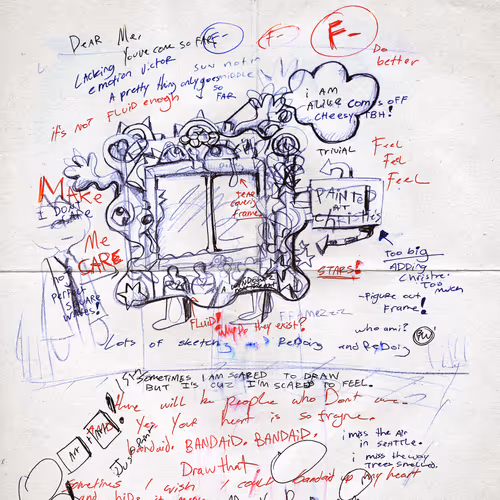 Dear Me,
F-
F-
F-
Do
better
You've come so far
Lacking
emotion victor
sun not in
A pretty thing only goes
MIDDLE
so
FAR
it's not FLUID enough
i AM
ALIKE comes off
cheesy, TBH!
TRIVIAL
Feel
Feel
Feel
MAKE
I DON'T
Me
CARE
Not
Perfect
frame
PAINTER
AT
Christie's
STARS!
Too big
ADDING
Christie..
Too
much
-Figure out
Frame!
FLUID!
Why Do they exist?
who am i?
Lots of sketch
ReDoing and ReDoing
SOMETIMES I AM SCARED TO DRAW
BUT IS CUZ I'M SCARED TO FEEL.
there will be people who Dont care.
Yes, Your heart is so
Bandaid. BANDAID. BANDAID.
Draw that
Art
Just Paint
i miss the Air
in SEATTLE.
i miss the way
Trees smelled.
Sometimes I wish I could Bandaid up my heart
and hide it